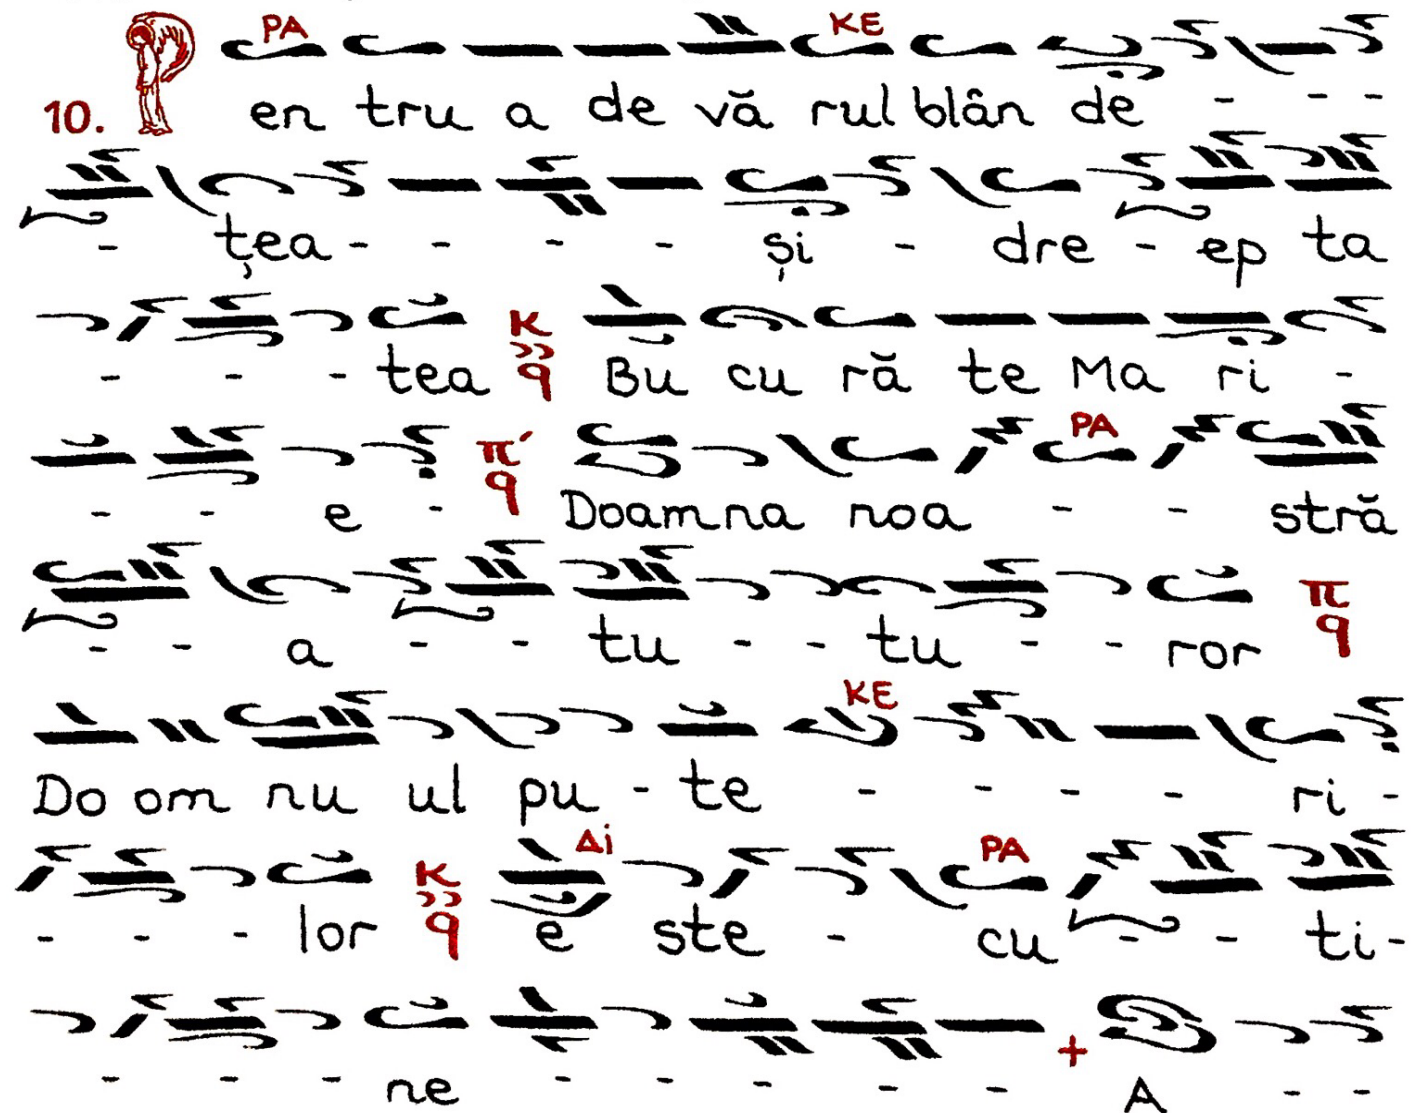 PA KE
10. P en tru a de vă rul blân de - - -
- țea - - - - și - dre - ep ta
- - - tea K q Bu cu ră te Ma ri -
PA
- - e - π́ q Doamna noa - - stră
- - a - - tu - - tu - - ror π q
KE
Do om nu ul pu - te - - - - ri -
Δi PA
- - - lor K q e ste - cu - - ti -
- - - ne - - - - - + A - -